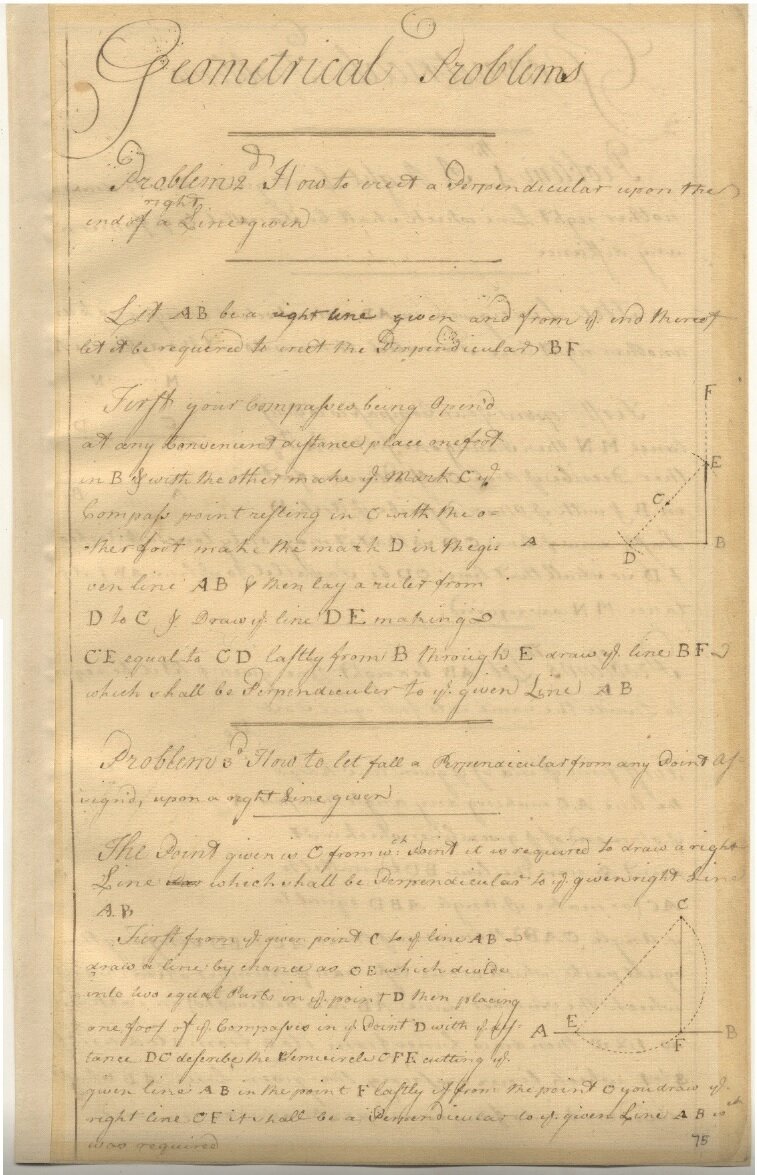 Geometrical Problems
Problem 2d How to erect a Perpendicular upon the
right
end of a Line given
Let AB be a right line given and from ye. end thereof
let it be required to erect the Perpendicular BF
First your Compasses being Open'd
at any Convenient distance place one foot
in B & with the other make ye. Mark C ye.
Compass point resting in C with the o-
ther foot make the mark D in the gi
ven line AB & then lay a ruler from
D to C & Draw ye. line DE making
CE equal to CD lastly from B through E draw ye. line BF
which shall be Perpendicular to ye. given Line AB
F
E
C
A
D
B
Problem 3d How to let fall a Perpendicular from any Point as
signd, upon a right Line given
The Point given is C from wch. Point it is required to draw a right
Line which shall be Perpendicular to ye. given right Line
AB
First from ye. given point C to ye. line AB
draw a line by chance as CE which divide
into two equal Parts in ye. point D then placing
one foot of ye. Compasses in ye. Point D with ye. dis-
tance DC describe the Semicircle CFE cutting ye.
given line AB in the point F lastly if from the point C you draw ye.
right line CF it shall be a Perpendicular to ye. given Line AB wch
was required
C
A
E
F
B
75